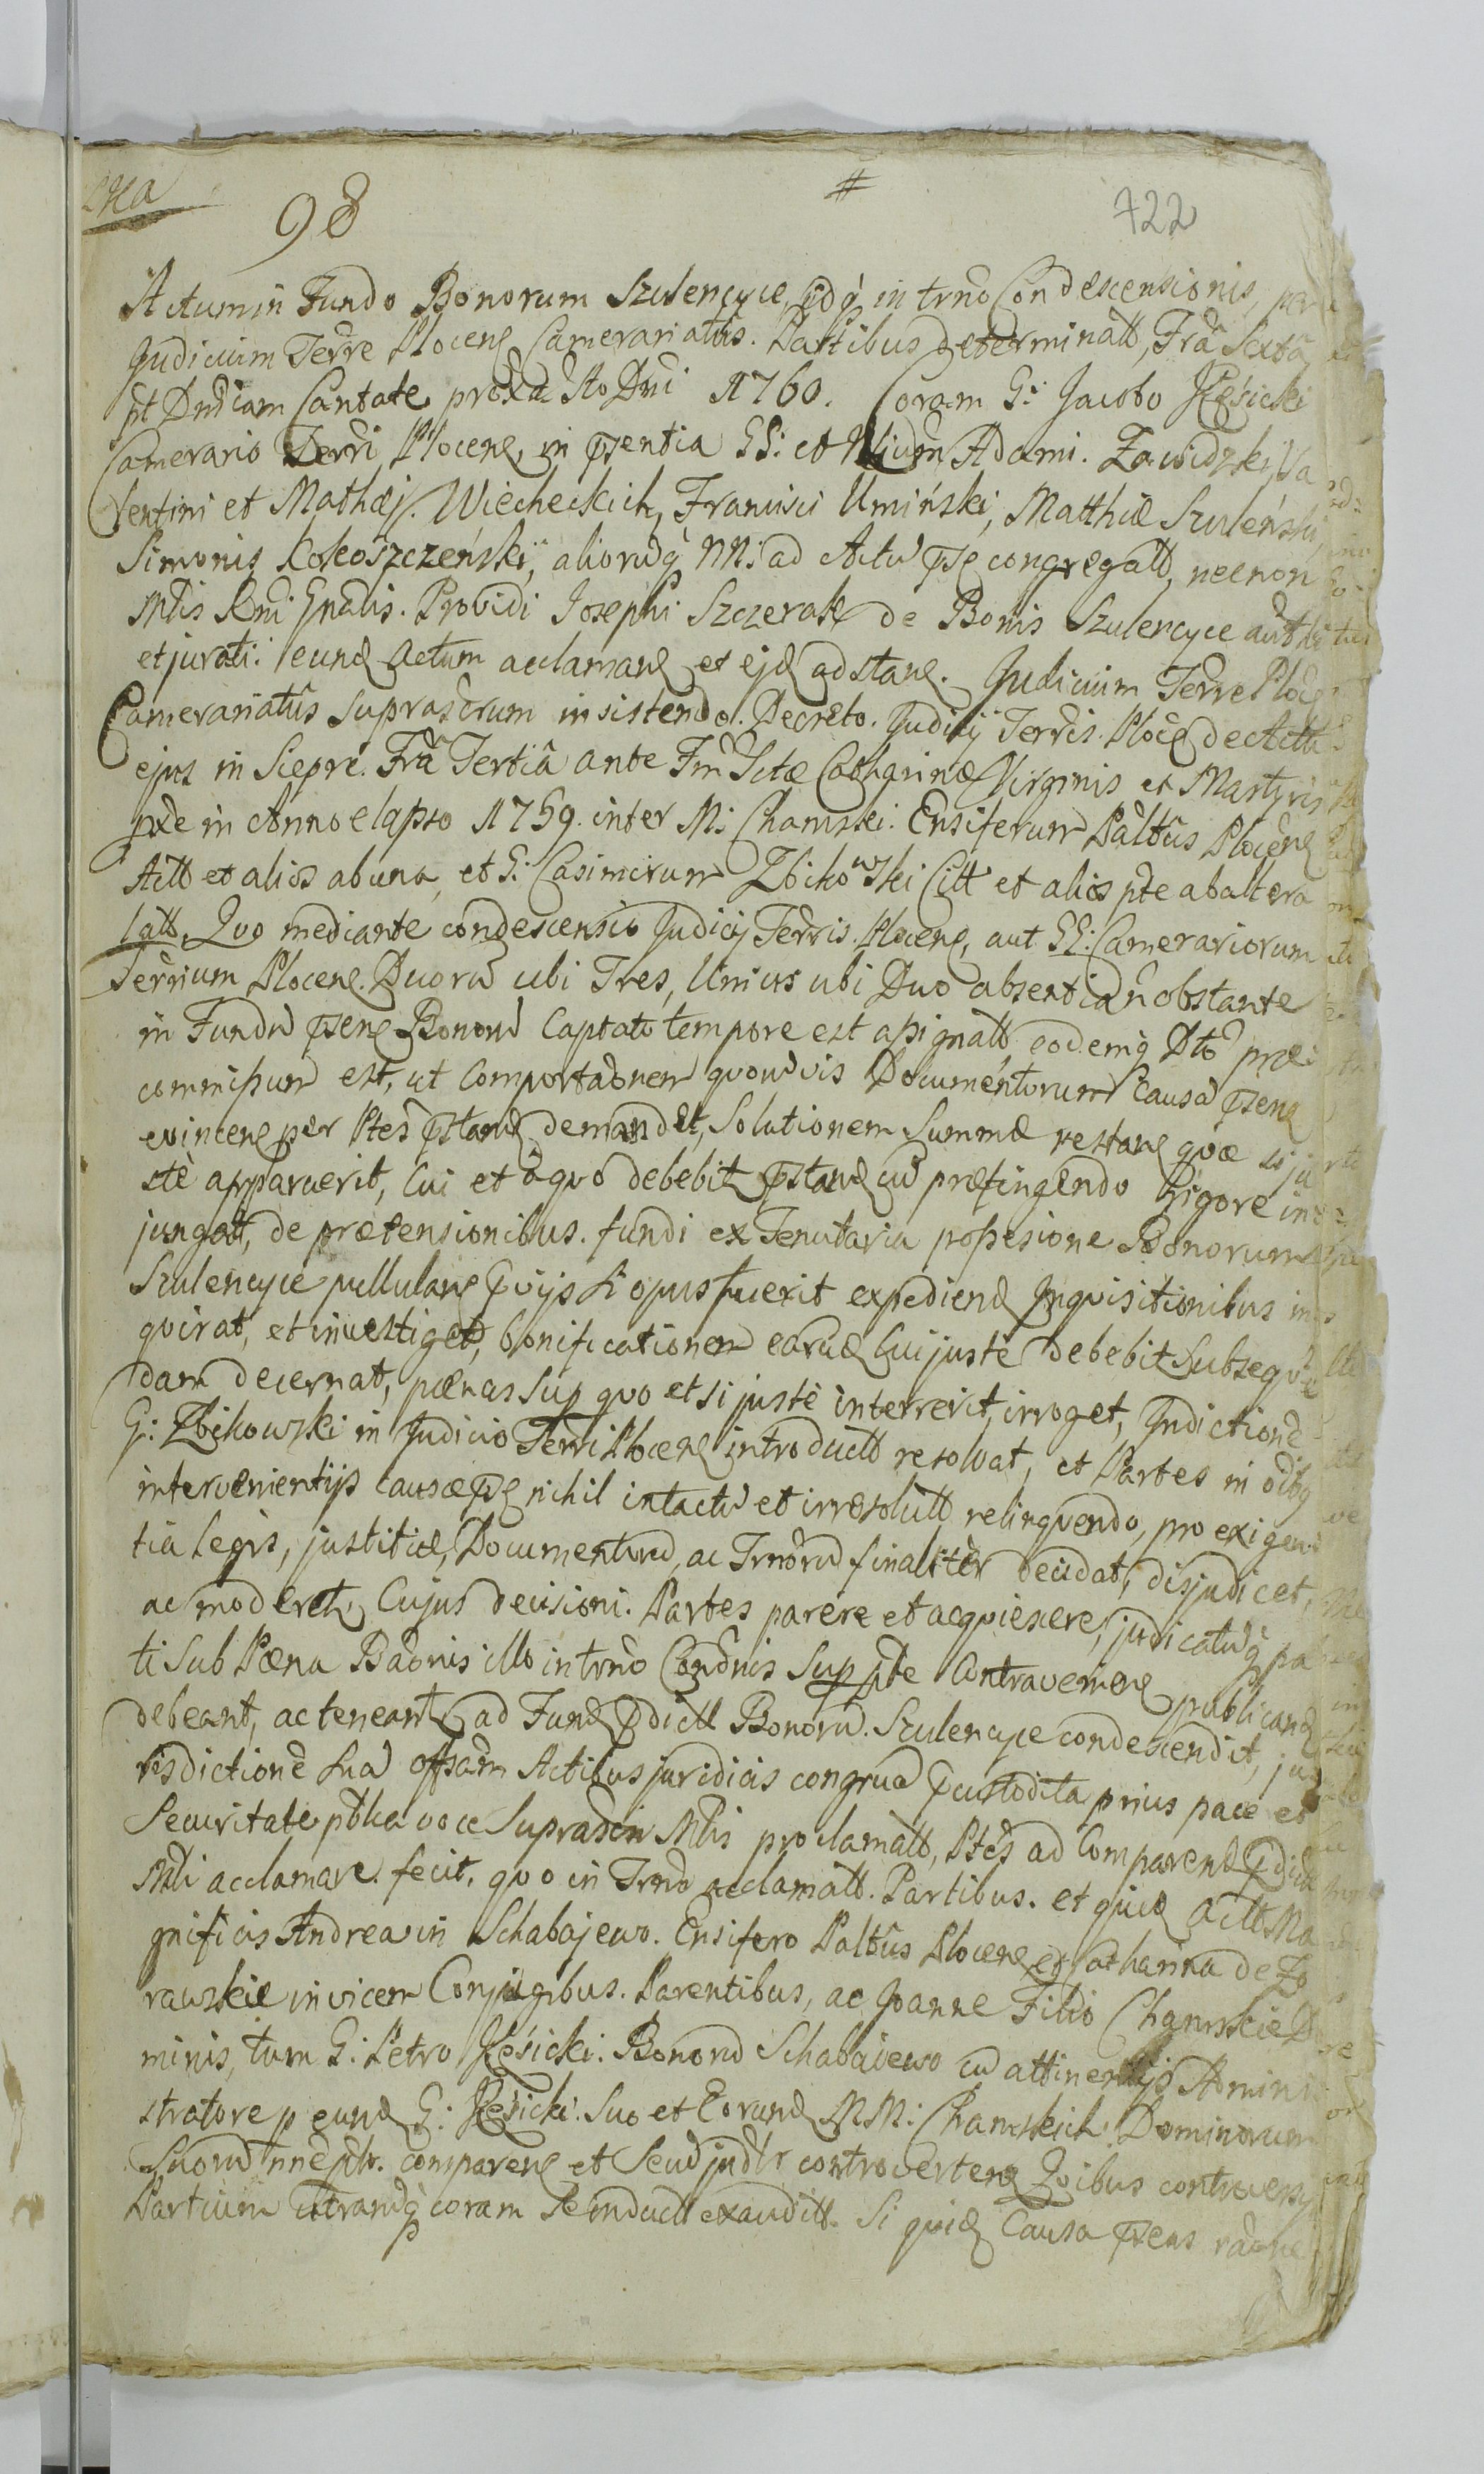 98
#
722
Actum in Fundo Bonorum Szulencyce, idq in trno Condescensionis, per
Judicium Terre Plocens Camerariatus. Partibus determinatt, Fra Sexta
pt Dndicam Cantate proxa Ao Dni 1760. Coram G: Jacobo Kęsicki
Camerario Terri Plocens, in psentia GG: et Nlium Adami. Zawidzki, Va
lentini et Mathæj. Wiecheckich, Francisci Umiński, Matthiæ Szuleński,
Simonis Kokoszczeński, aliorumq NN: ad Actu pse congregatt, necnon
Mtlis Rni Gnalis. Providi Josephi Szczerak de Bonis Szulencyce auth
et jurati. eund actum acclamans et ejd adstans. Judicium Terre Ploc
Camerariatus suprasdrum insistendo. Decreto. Judicij Terris. Ploc de Actu
ejus in Siepre. Fra Tertia ante Fm Sctæ Catharinæ Virginis et Martyris
pxde in Anno elapso 1759. inter M: Chamski. Ensiferum Paltus Plocens
Actt et alios ab una, et G: Casimirum Zbikowski Citt et alios pte ab altera
latt, Quo mediante condescensio Judicij Terris. Plocens, aut GG: Camerariorum
Terrium Plocens. Duoru ubi Tres, Unius ubi Duo absentia n obstante
in Fundu psens Bonoru captato tempore est assignatt eodemq Dto præ
commissum est, ut Comportaonem quoruvis Documentorum causa psens
evincens per Ptes pstand demandet, Solutionem Summæ restans quæ si ju
ste apparuerit, cui et a quo debebit pstand cu præfingendo Rigore in
jungat, de prætensionibus. fundi ex Tenutaria possesione Bonorum
Szulencyce pullulans pvijs si opus fuerit expediend Inquisitionibus in
quirat, et investiget, bonificationem earud cui juste debebit subseque
dam decernat, pænas sup quo et si juste interverit, irroget, Indictione
G: Zbikowski in Judicio Terri Plocens introductt resolvat, et Partes in oibq
intervenientijs causæ pse nihil intactu et irresolutt relinquendo, pro exigen
tia legis, justitiæ, Documentoru, ac Trnoru finaliter decidat, disjudicet,
ac moderet, Cujus decisioni. Partes parere et acquiescere, judicatuq pa
ti sub Pæna Baonis illo in trno Condnis sup pte Contravenien publicand
debeant, ac teneant, ad Fund pdictt Bonoru. Szulencyce condescendit, ju
risdictione sua offsam Actibus juridicis congrua pcustodita prius pace et
Securitate pblca voce Supradcn Mtlis proclamatt, Ptes ad Comparend pdict
Mtli acclamare fecit, quo in Trno acclamatt. Partibus. et quid Actt Ma
gnificis Andrea in Schabajewo. Ensifero Paltus Plocens et Catharina de Zo
rawskie invicem Conjugibus. Parentibus, ac Joanne Filio Chamskie Do
minis, tum G: Petro Kęsicki. Bonoru Schabajewo cu attinentijs Admini
stratore p eund G: Kęsicki. Suo et Eorund MM: Chamskich Dominorum
Suoru nnẽ pltr. comparens et Secu judlr controvertens Quibus controversijs
Partium utranq coram Se inductt exauditt. Si quid Causa psens